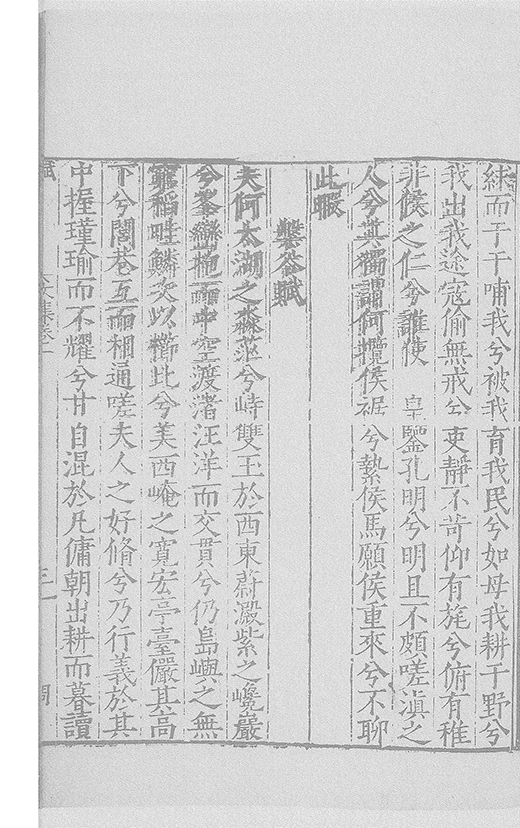 綀而于于哺我兮被我育我民兮如母我耕于野兮
我出我途寇偷無戒兮吏靜不苛仰有旄兮俯有稚
非侯之仁兮誰使　皇鑒孔明兮明且不頗嗟滇之
人兮其獨謂何攬侯裾兮縶侯馬願侯重來兮不聊
此暇
鑿谷賦
夫何太湖之淼茫兮峙雙玉於西東蔚澱紫之巉巖
兮峯巒抱而中空渡渚汪洋而交貫兮仍島嶼之無
窮稻畦鱗次以櫛比兮美西崦之寬宏亭臺儼其高
下兮閭巷互而相通嗟夫人之好脩兮乃行義於其
中握瑾瑜而不耀兮甘自混於凡傭朝出耕而暮讀
文集卷一